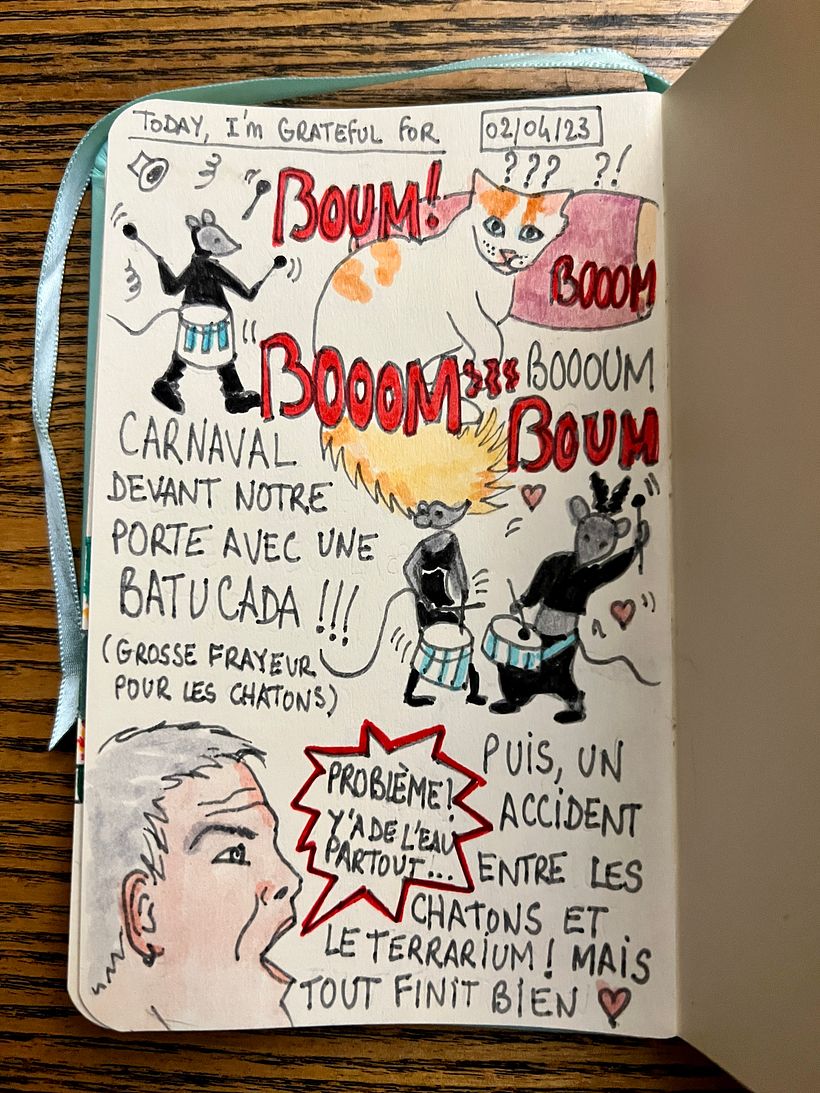 TODAY, I'm GRATEFUL FOR
02/04/23
??? ?!
BOUM!
BOOOM
BOOOM
BOOOUM
BOUM
CARNAVAL
DEVANT NOTRE
PORTE AVEC UNE
BATUCADA !!!
(GROSSE FRAYEUR
POUR LES CHATONS)
PROBLÈME!
Y'A DE L'EAU
PARTOUT...
PUIS, UN
ACCIDENT
ENTRE LES
CHATONS ET
LE TERRARIUM! MAIS
TOUT FINIT BIEN